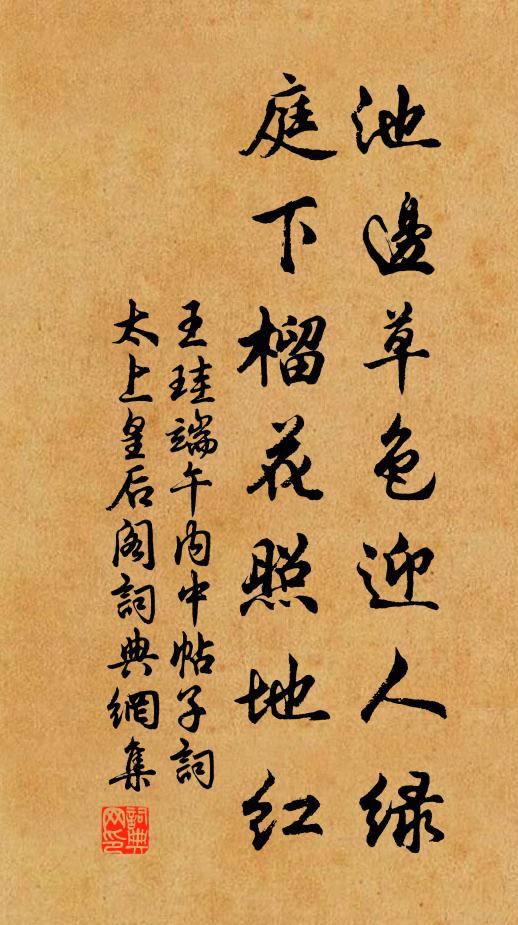 池邊草色迎人緑
庭下榴花照地紅
王珪端午内中帖子詞
太上皇后阁詞典網集
詞典
网印